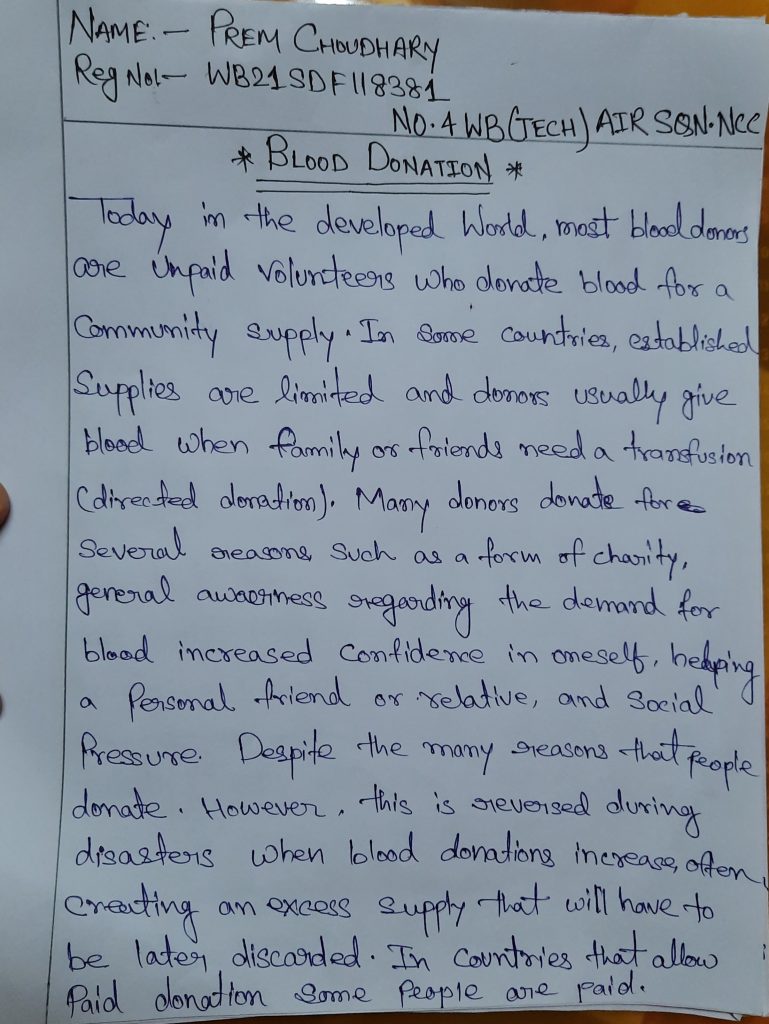 NAME:- PREM CHOUDHARY
Reg No:- WB21SDF118381
NO.4 WB(TECH) AIR SQN.NCC
* BLOOD DONATION *
Today in the developed World, most blood donors
are Unpaid volunteers who donate blood for a
Community supply. In Some countries, established
Supplies are limited and donors usually give
blood when family or friends need a transfusion
(directed donation). Many donors donate for
Several reasons Such as a form of charity,
general awarness regarding the demand for
blood increased Confidence in oneself, helping
a Personal friend or relative, and Social
Pressure. Despite the many reasons that people
donate. However, this is reversed during
disasters when blood donations increase, often
Creating an excess supply that will have to
be later discarded. In Countries that allow
Paid donation Some People are paid.